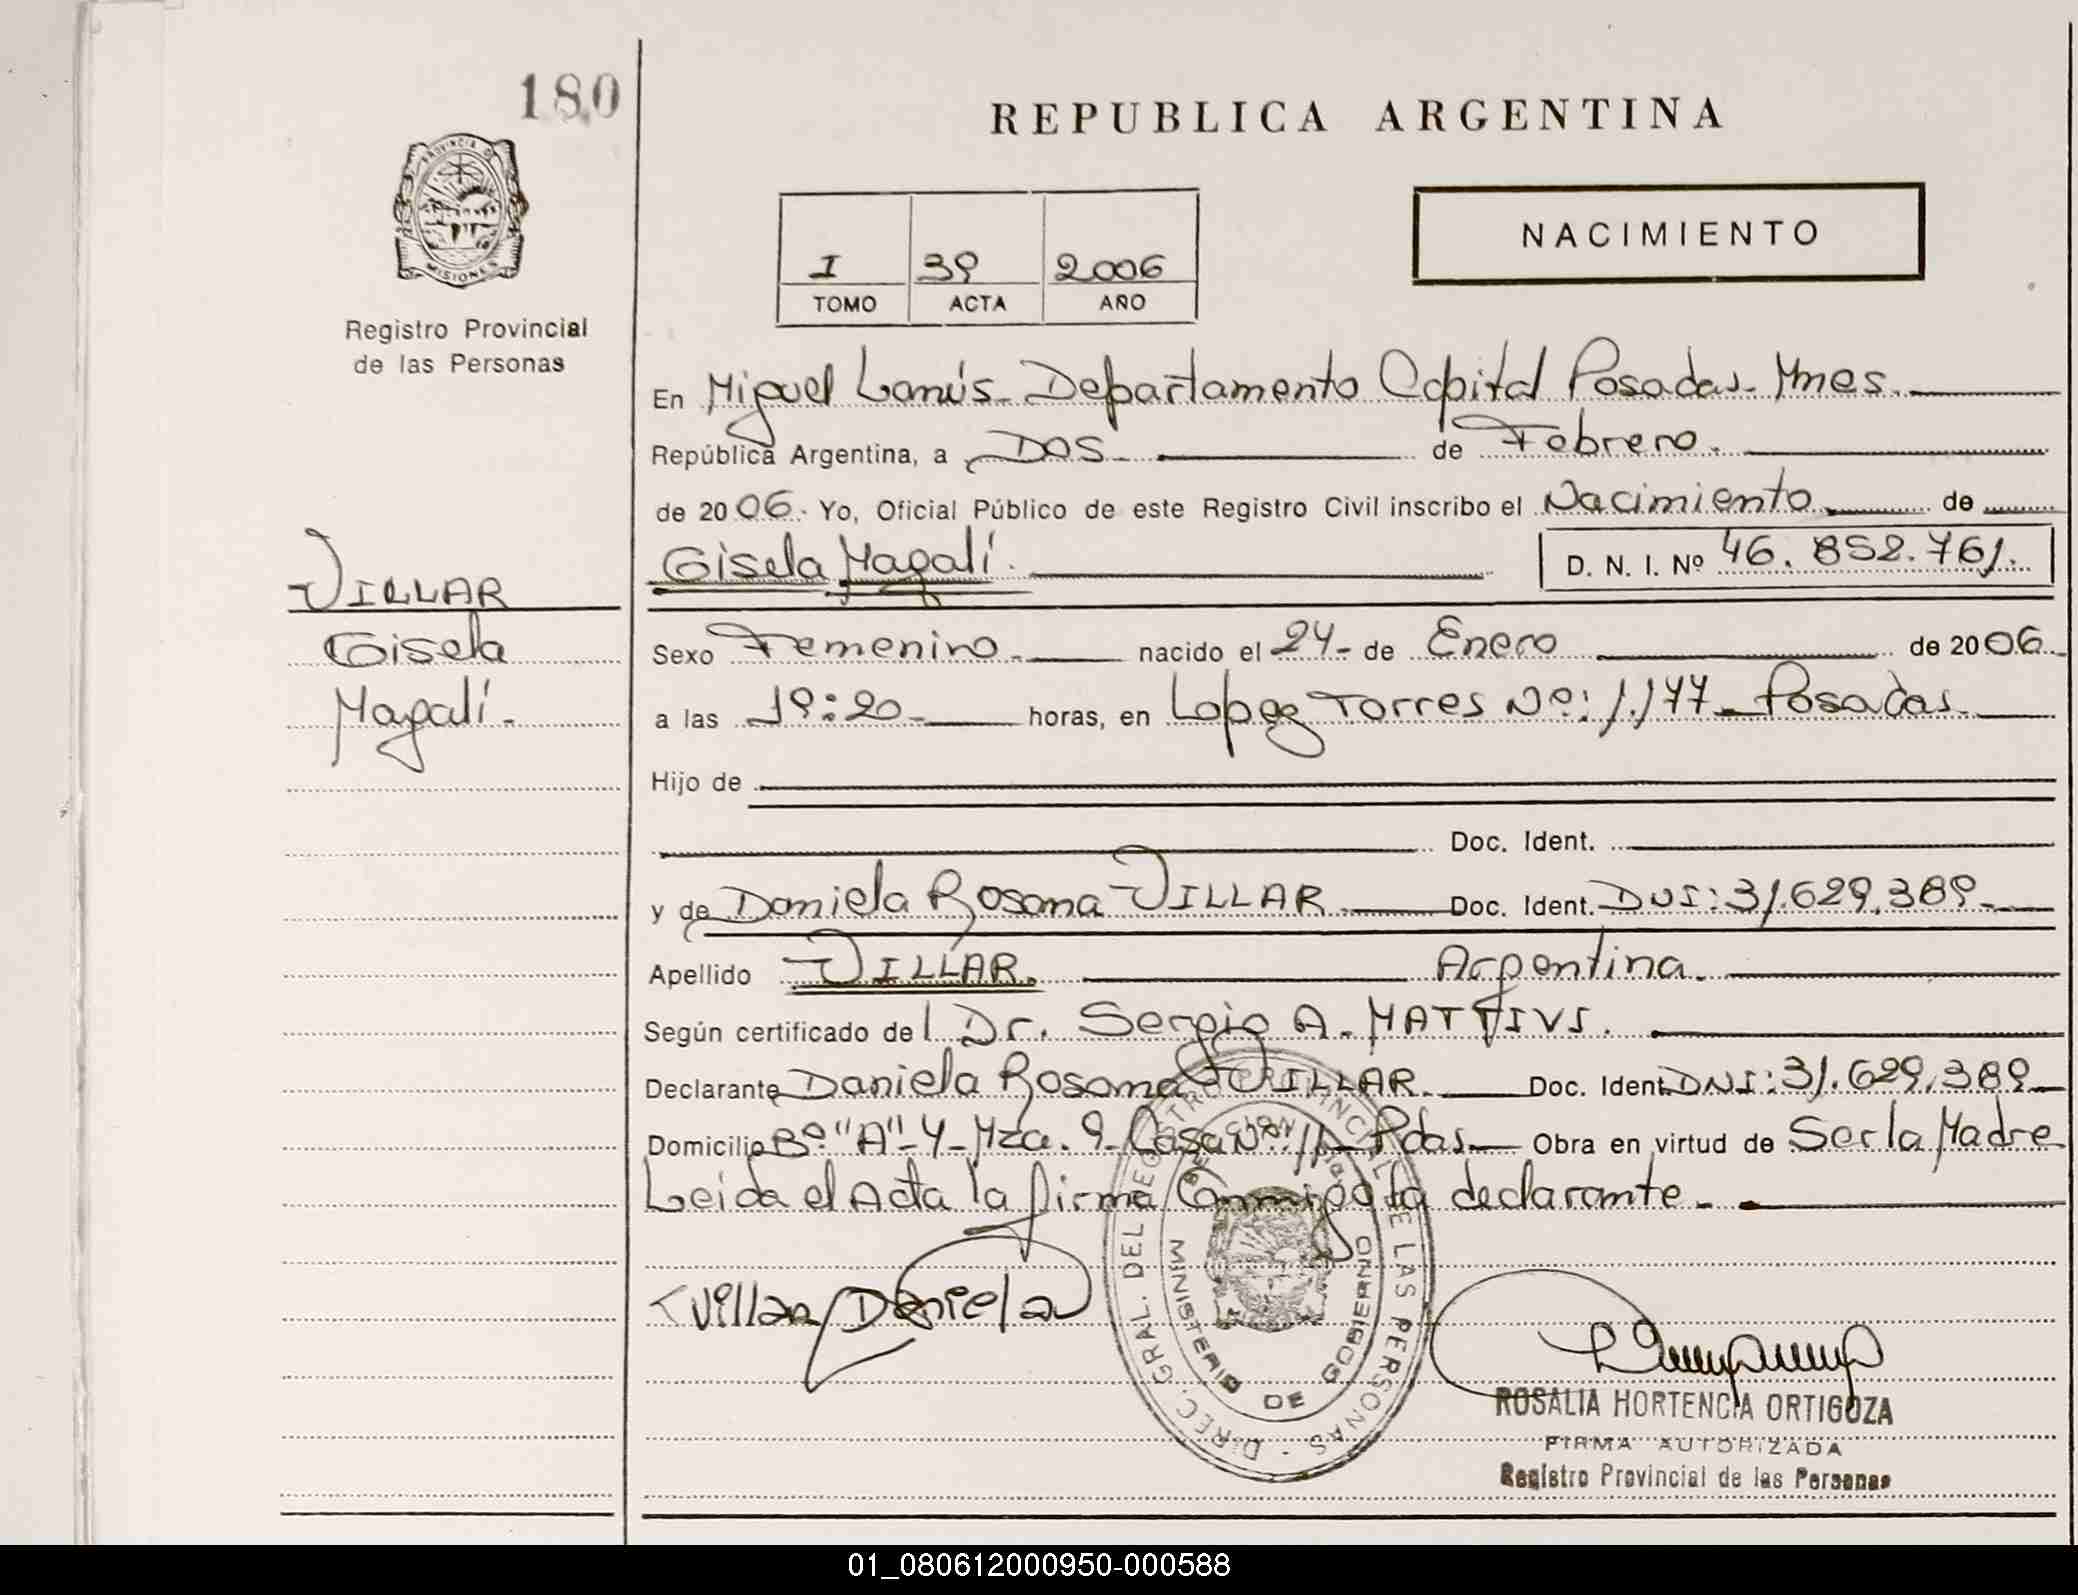 180
REPUBLICA ARGENTINA
PROVINCIA D
MISIONES
NACIMIENTO
I 39 2006
TOMO ACTA AÑO
Registro Provincial
de las Personas
En Miguel Lanús - Departamento Capital Posadas - Mnes.
República Argentina, a Dos de Febrero.
de 2006. Yo, Oficial Público de este Registro Civil inscribo el Nacimiento de
Gisela Magalí. D. N. I. Nº 46.852.761.
VILLAR
Gisela
Magalí.
Sexo Femenino nacido el 24 - de Enero de 2006.
a las 19:20 horas, en Lopez Torres Nº: 1.177 - Posadas
Hijo de
Doc. Ident.
y de Daniela Rosana VILLAR. Doc. Ident. DNI: 31.629.389
Apellido VILLAR. Argentina.
Según certificado del Dr. Sergio A. MATTIVI.
Declarante Daniela Rosana VILLAR. Doc. Ident. DNI: 31.629.389
Domicilio Bº "A"-4 - Mza. 9 - Casa Nº: 11 - Pdas. Obra en virtud de Ser la Madre
Leida el Acta la firma Conmigo la declarante.
Villar Daniela
DIREC. GRAL. DEL REGISTRO PROVINCIAL DE LAS PERSONAS -
MINISTERIO DE GOBIERNO
ROSALIA HORTENCIA ORTIGOZA
FIRMA AUTORIZADA
Registro Provincial de las Personas
01_080612000950-000588